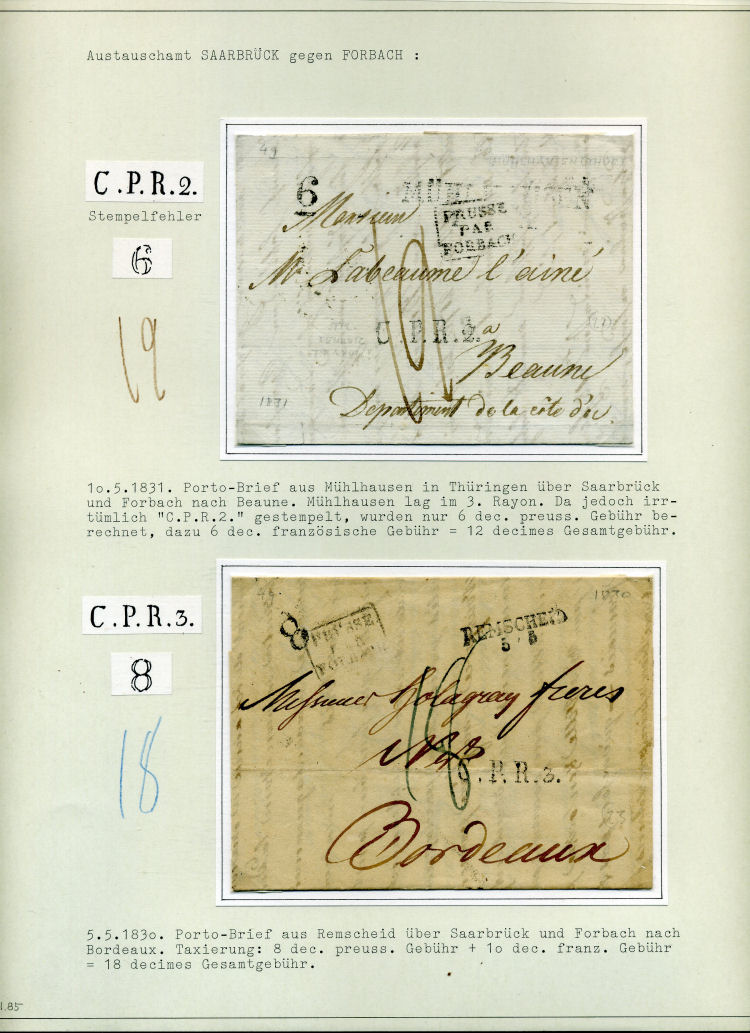 Austauschamt SAARBRÜCK gegen FORBACH :
C.P.R.2.
Stempelfehler
6
19
49
6
MÜHL
Monsieur
PRUSSE
PAR
FORBACH
Mr Labeaume l'ainé
C.P.R.2.
a
Beaune
1831
Departement de la côte d'or
1o.5.1831. Porto-Brief aus Mühlhausen in Thüringen über Saarbrück
und Forbach nach Beaune. Mühlhausen lag im 3. Rayon. Da jedoch irr-
tümlich "C.P.R.2." gestempelt, wurden nur 6 dec. preuss. Gebühr be-
rechnet, dazu 6 dec. französische Gebühr = 12 decimes Gesamtgebühr.
C.P.R.3.
8
18
49
1830
8
PRUSSE
FORBACH
REMSCHEID
5 5
18
Messieurs frères
C.P.R.3.
Bordeaux
5.5.183o. Porto-Brief aus Remscheid über Saarbrück und Forbach nach
Bordeaux. Taxierung: 8 dec. preuss. Gebühr + 1o dec. franz. Gebühr
= 18 decimes Gesamtgebühr.
1.85